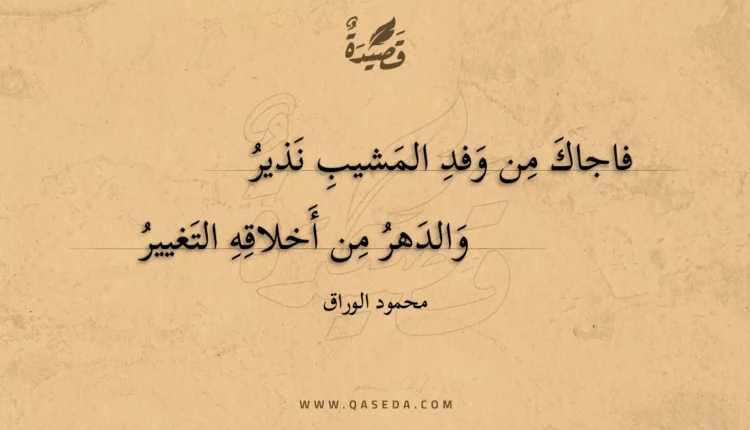 قَصِيْدَةٌ
فاجاكَ مِن وَفدِ المَشيبِ نَذيرُ
وَالدَهرُ مِن أَخلاقِهِ التَغييرُ
محمود الوراق
WWW.QASEDA.COM